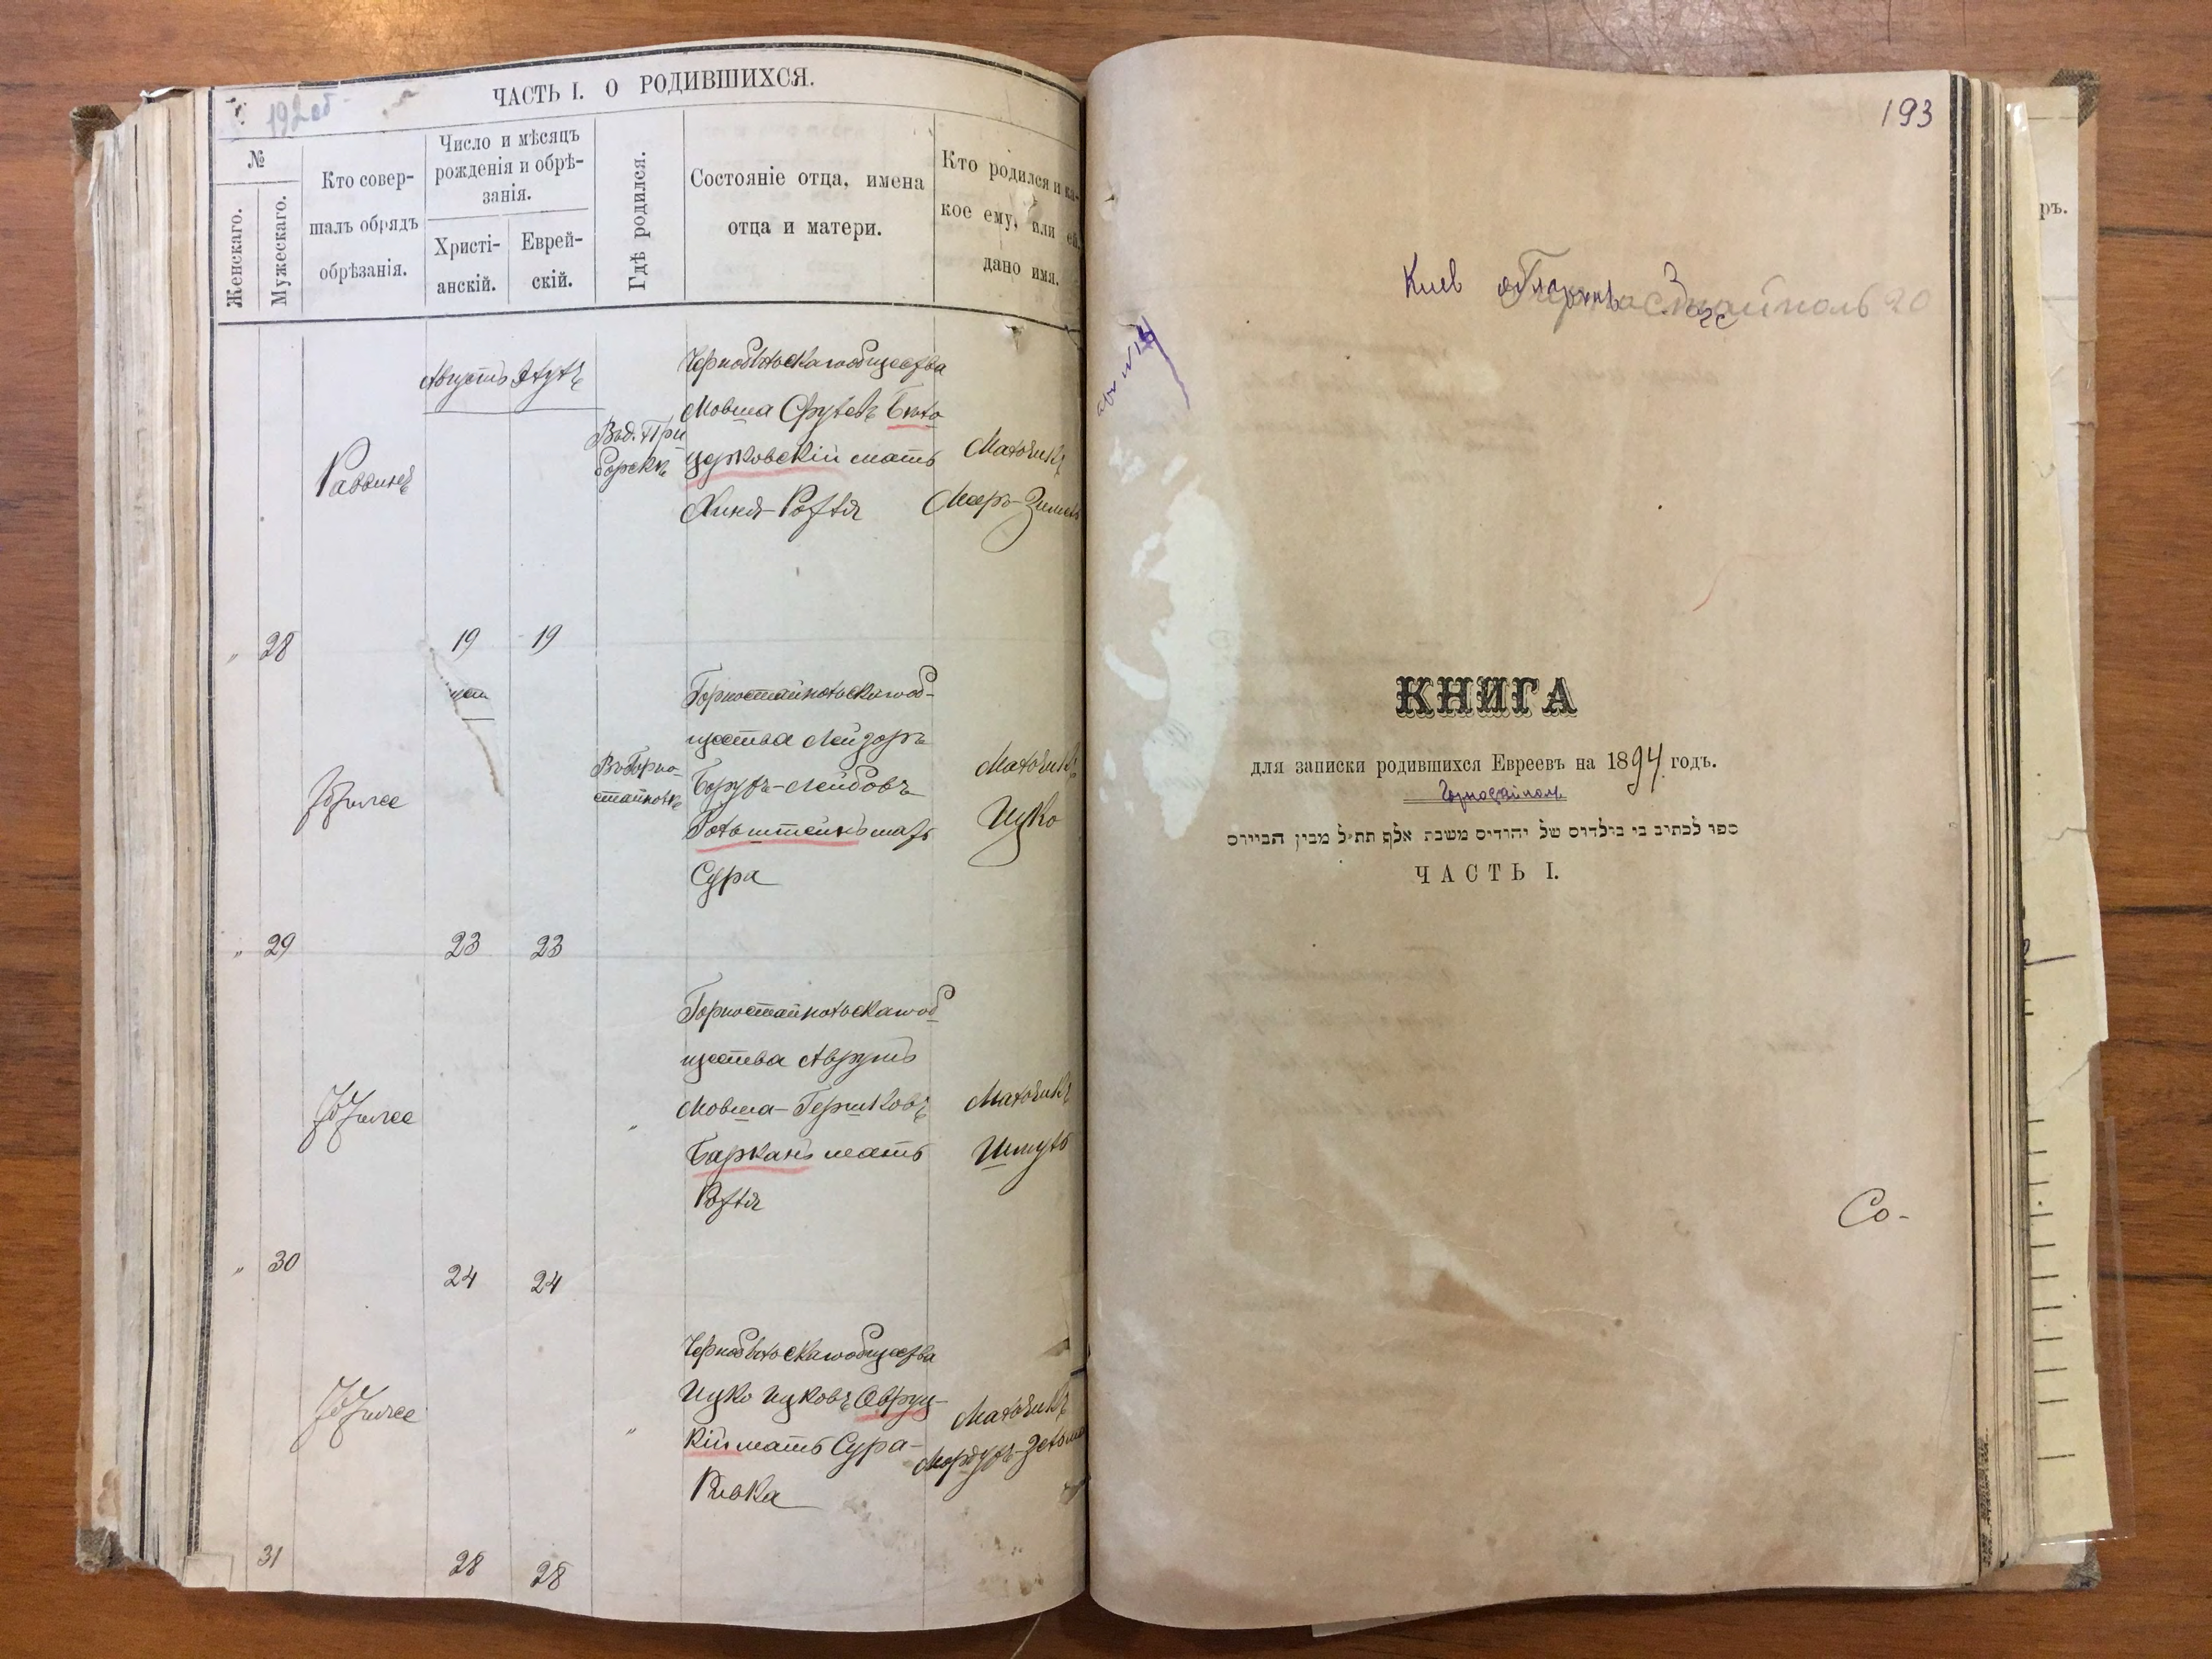 192об
ЧАСТЬ I. О РОДИВШИХСЯ.
№
Женскаго.
Мужескаго.
Кто совер-
шалъ обрядъ
обрѣзанія.
Число и мѣсяцъ
рожденія и обрѣ-
занія.
Христі-
анскій.
Еврей-
скій.
Гдѣ родился.
Состояніе отца, имена
отца и матери.
Кто родился и ка-
кое ему, или ей,
дано имя.
Августъ
Раввинъ
борскъ
Чернобыльскаго общества
Мовша Срулевъ
мать
Хиня-Рохля
Мальчикъ
Меер-
„ 28
19 19
Въ Горно-
стайполѣ
Горностайпольскаго об-
щества Лейзоръ
Борухъ-Лейбовъ
Гольштейнъ мать
Сура
Мальчикъ
Ицко
„ 29
23 23
„
Горностайпольскаго об
щества Аврумъ
Мовша-Гершковъ
Барканъ мать
Рохля
Мальчикъ
Шмуль
„ 30
24 24
„
Чернобыльскаго общества
Ицко Ицковъ Овруц-
кій мать Сура-
Ривка
Мальчикъ
Мордухъ-Зельман
31
28 28
193
Киев
Горностайполь 20
КНИГА
для записки родившихся Евреевъ на 1894 годъ.
Горностайполь
ספו לכתיב בי בילדוס של יהודיס משבת אלף תת״ל מבין הבייוס
ЧАСТЬ I.
Со-
ръ.